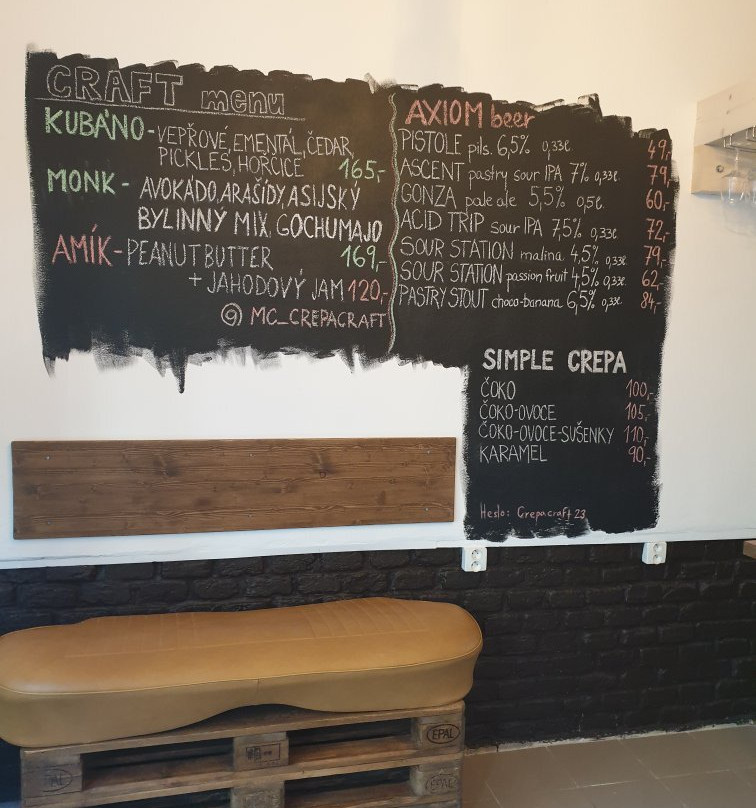 CRAFT menu
KUBÁNO - VEPŘOVÉ, EMENTÁL, ČEDAR,
PICKLES, HOŘČICE 165,-
MONK - AVOKÁDO, ARAŠÍDY, ASIJSKÝ
BYLINNÝ MIX, GOCHUMAJO
169,-
AMÍK - PEANUT BUTTER
+ JAHODOVÝ JAM 120,-
@ MC_CREPACRAFT
AXIOM beer
PISTOLE pils. 6,5% 0,33l 49,-
ASCENT pastry sour IPA 7% 0,33l 79,-
GONZA pale ale 5,5% 0,5l 60,-
ACID TRIP sour IPA 7,5% 0,33l 72,-
SOUR STATION malina 4,5% 0,33l 79,-
SOUR STATION passion fruit 4,5% 0,33l 62,-
PASTRY STOUT choco-banana 6,5% 0,33l 84,-
SIMPLE CREPA
ČOKO 100,-
ČOKO-OVOCE 105,-
ČOKO-OVOCE-SUŠENKY 110,-
KARAMEL 90,-
Heslo: Crepacraft 23
EPAL
EPAL